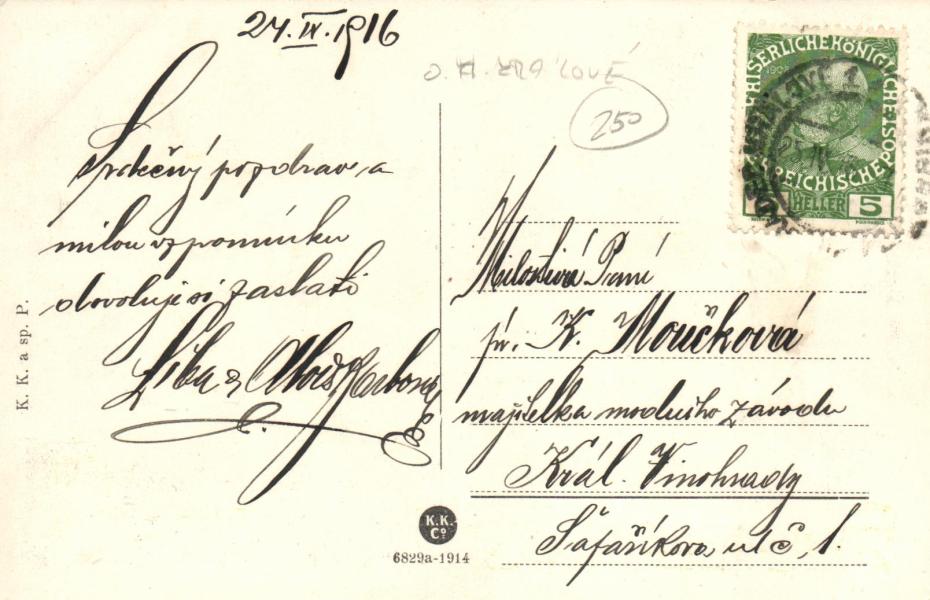 24. IV. 1916
D. K. KRÁLOVÉ
250
Srdečný pozdrav a
milou vzpomínku
dovolují si zaslati
Liba a Alois
K. K. a sp. P.
K.K.
Cº
6829a-1914
KAISERLICHE KÖNIGLICHE ÖSTERREICHISCHE POST
1908
HELLER
5
Milostivá Paní
pí. K. Moučková
majitelka modního závodu
Král. Vinohrady
Šafaříkova ul č. 1.